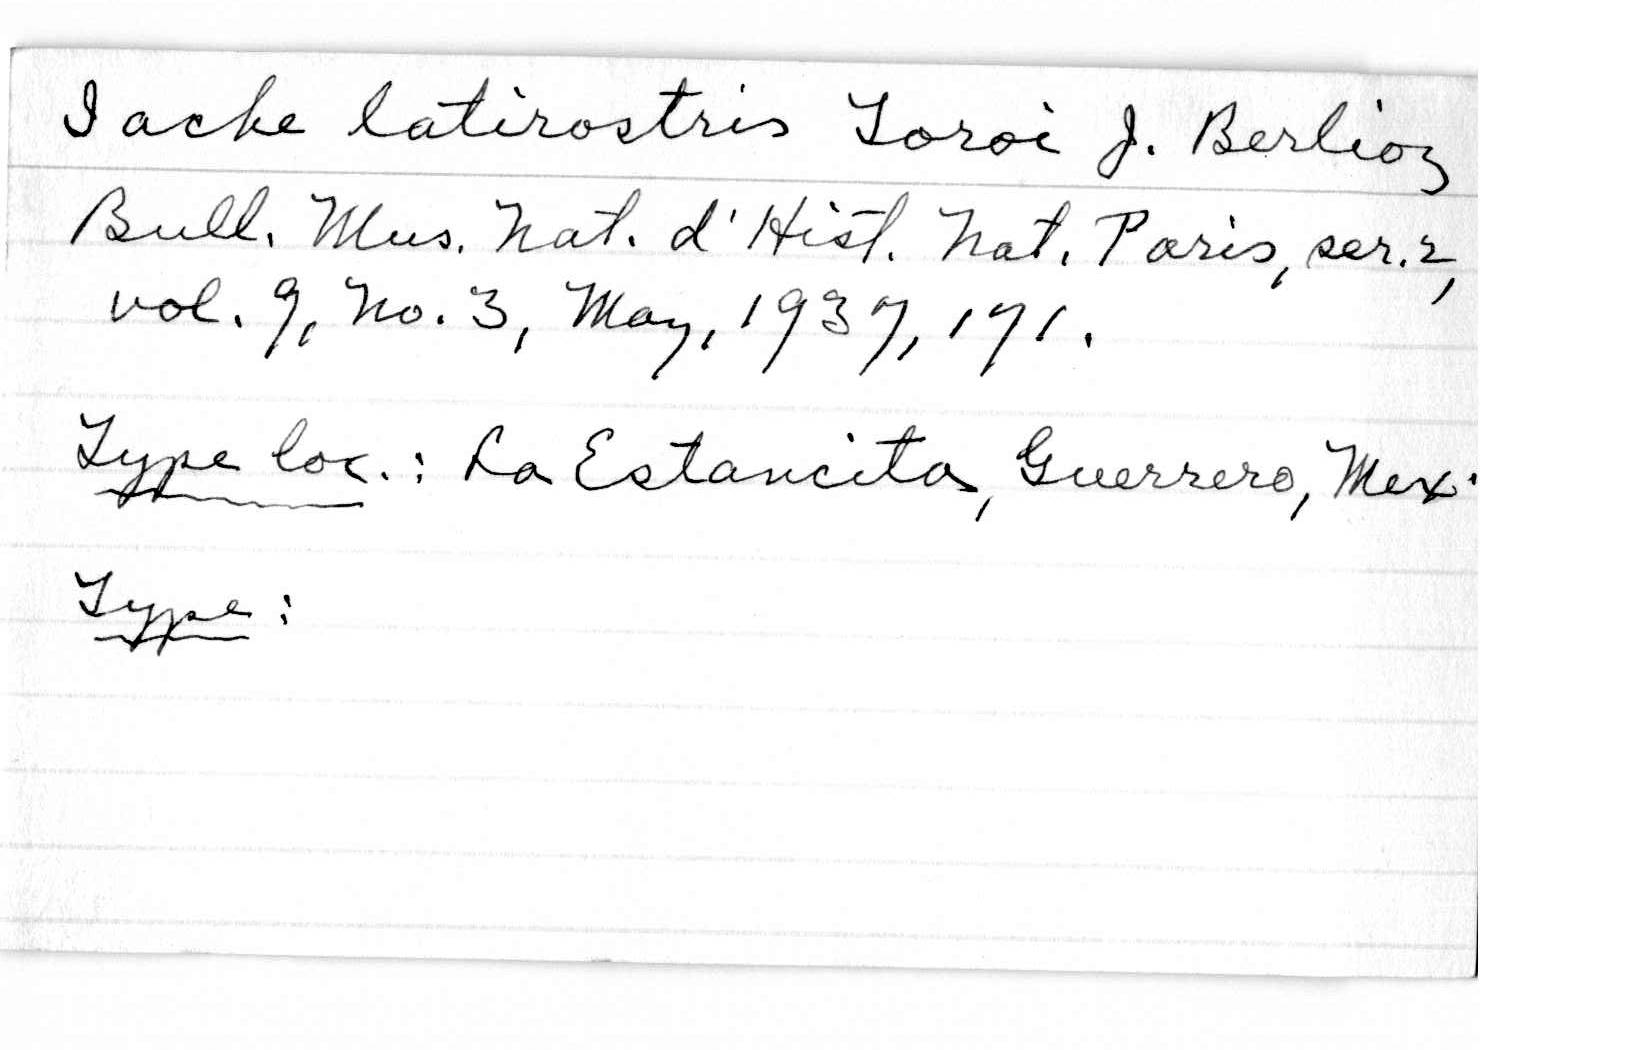 Iache latirostris Toroi J. Berlioz
Bull. Mus. Nat. d'Hist. Nat. Paris, ser. 2,
vol. 9, No. 3, May, 1937, 171.
Type loc.: La Estancita, Guerrero, Mex.
Type: